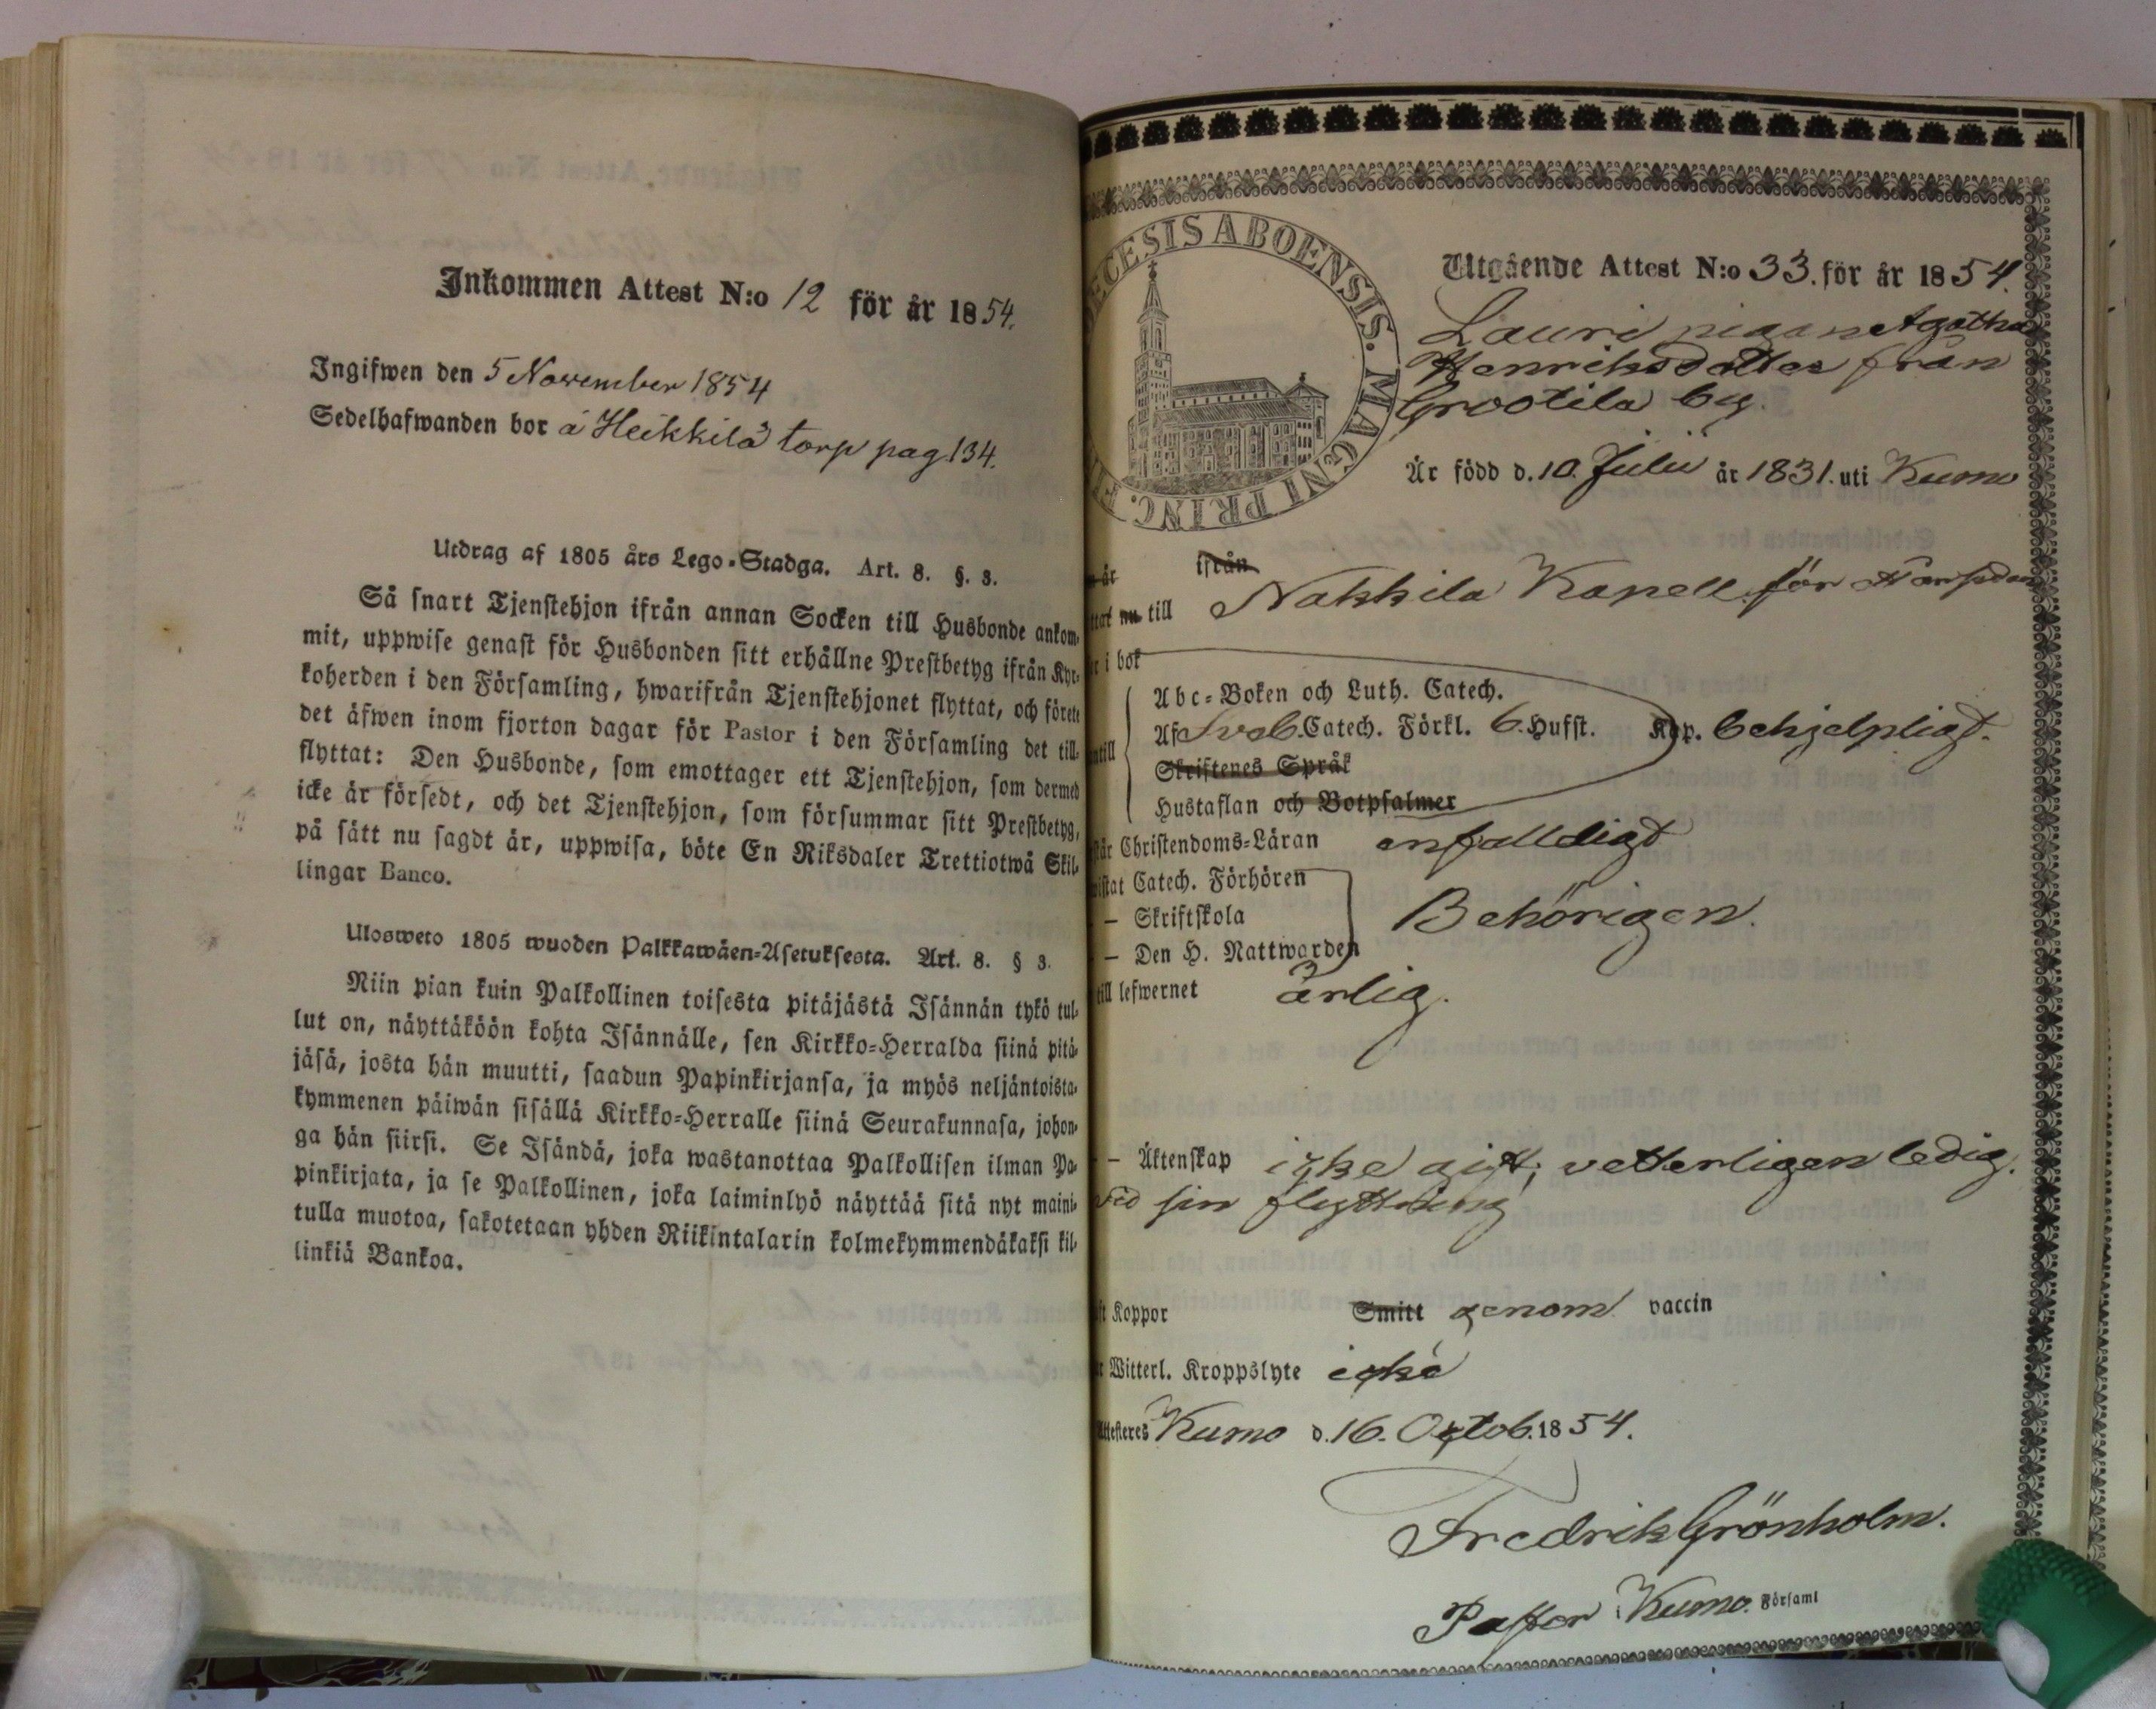 Inkommen Attest N:o 12 för år 1854.
Ingifwen den 5 November 1854
Sedelhafwanden bor å Heikkilä torp pag 134.
Utdrag af 1805 års Lego-Stadga. Art. 8. §. 3.
Så snart Tjenstehjon ifrån annan Socken till Husbonde ankom-
mit, uppwise genast för Husbonden sitt erhållne Prestbetyg ifrån Kyr-
koherden i den Församling, hwarifrån Tjenstehjonet flyttat, och förete
det äfwen inom fjorton dagar för Pastor i den Församling det till-
flyttat: Den Husbonde, som emottager ett Tjenstehjon, som dermed
icke är försedt, och det Tjenstehjon, som försummar sitt Prestbetyg,
på sätt nu sagdt är, uppwisa, böte En Riksdaler Trettiotwå Skil-
lingar Banco.
Ulosweto 1805 wuoden Palkkawäen-Asetuksesta. Art. 8. § 3.
Niin pian kuin Palkollinen toisesta pitäjästä Isännän tykö tul-
lut on, näyttäköön kohta Isännälle, sen Kirkko-Herralda siinä pitä-
jäsä, josta hän muutti, saadun Papinkirjansa, ja myös neljäntoista-
kymmenen päiwän sisällä Kirkko-Herralle siinä Seurakunnasa, johon-
ga hän siirsi. Se Isändä, joka wastanottaa Palkollisen ilman Pa-
pinkirjata, ja se Palkollinen, joka laiminlyö näyttää sitä nyt maini-
tulla muotoa, sakotetaan yhden Riikintalarin kolmekymmendäkaksi kil-
linkiä Bankoa.
DIOECESIS ABOENSIS. MAGNI PRINC. F
Utgående Attest N:o 33. för år 1854.
Lauri pigan Agatha
Henriksdotter från
Grootila by.
Är född d. 10. Julii år 1831. uti Kumo
är ifrån
ttat nu till Nakkila Kapell för
i bok
Abc-Boken och Luth. Catech.
till Af Sveb. Catech. Förkl. 6. Hufst. Kap. behjelpligt.
Skriftenes Språk
Hustaflan och Botpsalmer
Christendoms-Läran enfalldigt
Catech. Förhören
– Skriftskola Behörigen.
– Den H. Nattwarden
till lefwernet ärlig.
– Äktenskap icke gift, vetterligen ledig.
vid sin flyttning
Koppor Smitt genom vaccin
Witterl. Kroppslyte icke
Attesteres Kumo d. 16. Octob. 1854.
Fredrik Grönholm.
Pastor i Kumo. Församl